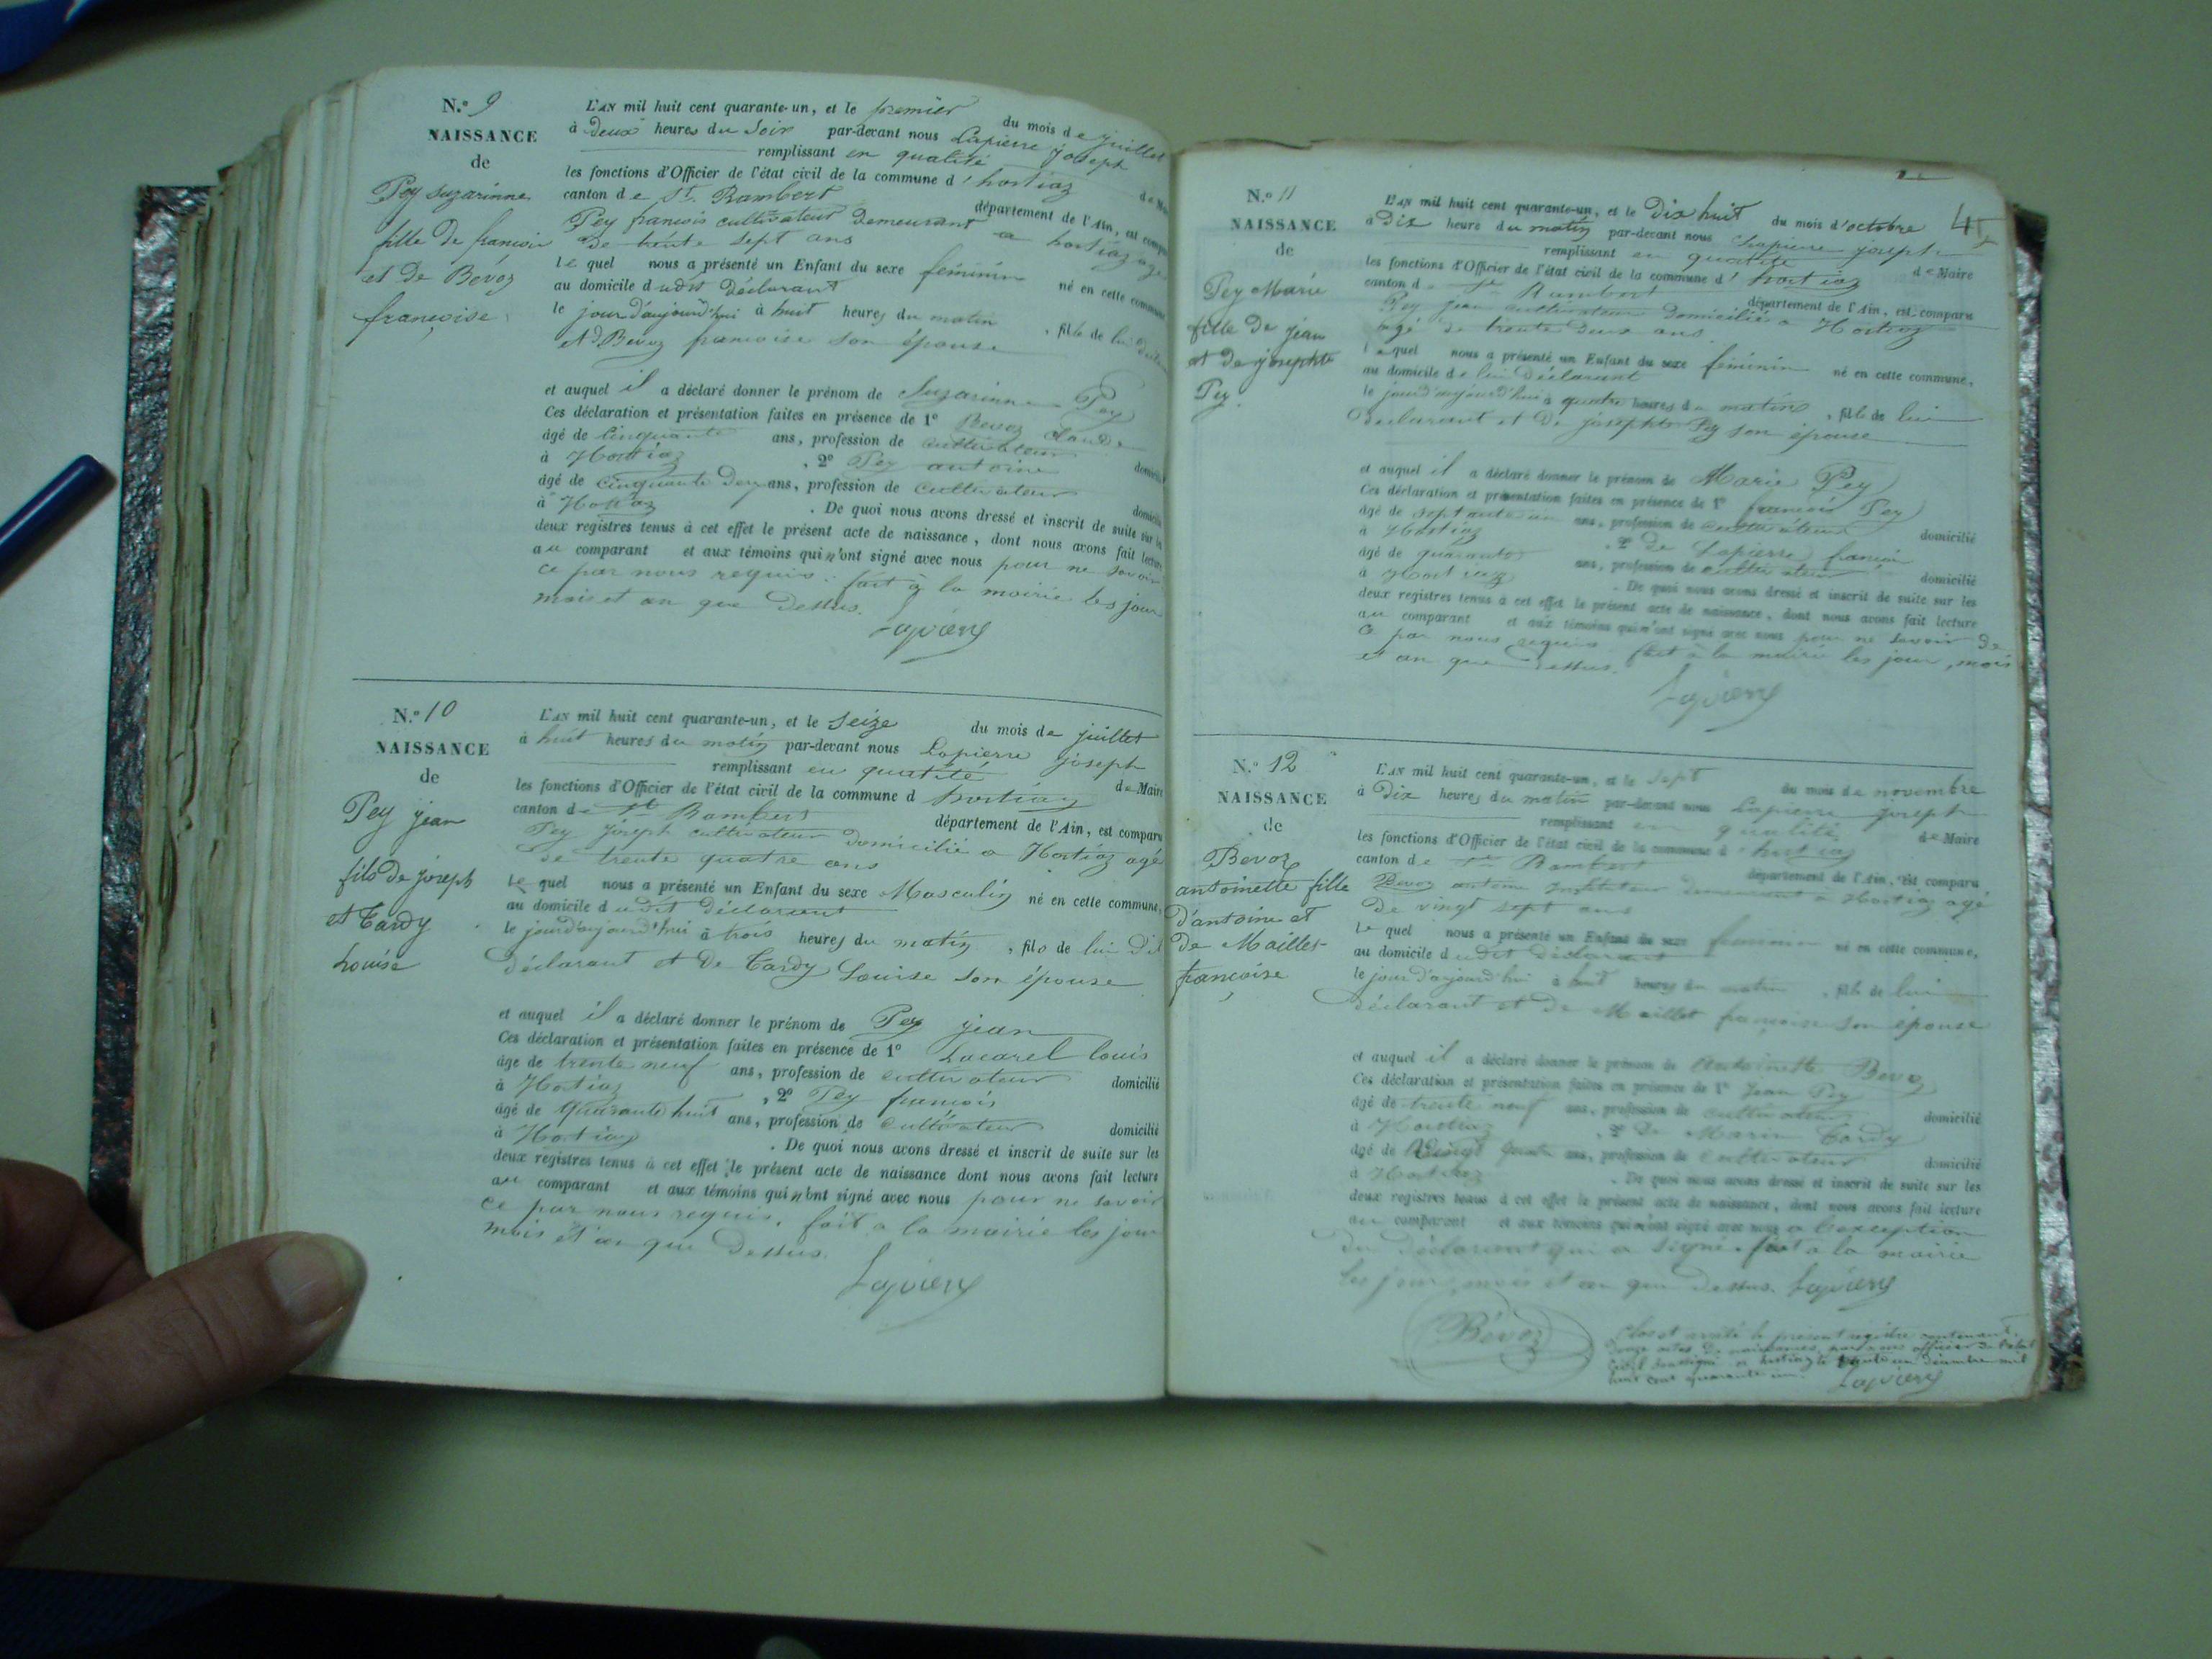 N.° 9
NAISSANCE
de
Pey suzarinne
fille de francois
et de Bévoz
francoise
L'AN mil huit cent quarante-un, et le premier du mois de juillet
à deux heures du soir par-devant nous Lapierre joseph
remplissant en qualité de Maire
les fonctions d'Officier de l'état civil de la commune d'hostiaz
canton de St. Rambert département de l'Ain, est comparu
Pey francois cultivateur demeurant a hostiaz agé
de trente sept ans
lequel nous a présenté un Enfant du sexe féminin né en cette commune
au domicile dudit déclarant
le jourd'aujourd'hui à huit heures du matin , fille de lui
et d Bevoz francoise son épouse
et auquel il a déclaré donner le prénom de Suzarinne Pey
Ces déclaration et présentation faites en présence de 1° Bevoz claude
âgé de cinquante ans, profession de cultivateur domicilié
à Hostiaz , 2° Pey antoine
âgé de cinquante deux ans, profession de cultivateur domicilié
à Hostiaz . De quoi nous avons dressé et inscrit de suite sur les
deux registres tenus à cet effet le présent acte de naissance, dont nous avons fait lecture
au comparant et aux témoins qui n'ont signé avec nous pour ne savoir
ce par nous requis. fait à la mairie les jour
mois et an que dessus.
Lapierre
N.° 10
NAISSANCE
de
Pey jean
fils de joseph
et Tardy
Louise
L'AN mil huit cent quarante-un, et le seize du mois de juillet
à huit heures du matin par-devant nous Lapierre joseph
remplissant en qualité de Maire
les fonctions d'Officier de l'état civil de la commune d hostiaz
canton de St Rambert département de l'Ain, est comparu
Pey joseph cultivateur domicilié a Hostiaz agé
de trente quatre ans
lequel nous a présenté un Enfant du sexe Masculin né en cette commune,
au domicile dudit déclarant
le jourd'aujourd'hui à trois heures du matin , fils de lui dit
déclarant et de Tardy Louise son épouse
et auquel il a déclaré donner le prénom de Pey jean
Ces déclaration et présentation faites en présence de 1° Lacarel louis
âge de trente neuf ans, profession de cultivateur domicilié
à Hostiaz , 2° Pey francois
âgé de quarante huit ans, profession de cultivateur domicilié
à Hostiaz . De quoi nous avons dressé et inscrit de suite sur les
deux registres tenus à cet effet le présent acte de naissance dont nous avons fait lecture
au comparant et aux témoins qui n'ont signé avec nous pour ne savoir
ce par nous requis. fait a la mairie les jour
mois et an que dessus.
Lapierre
N.° 11
NAISSANCE
de
Pey Marie
fille de jean
et de josephte
Pey
L'AN mil huit cent quarante-un, et le dix huit du mois d'octobre
à dix heure du matin par-devant nous Lapierre joseph
remplissant en qualité de Maire
les fonctions d'Officier de l'état civil de la commune d'hostiaz
canton de St Rambert département de l'Ain, est comparu
Pey jean cultivateur domicilié a Hostiaz
agé de trente deux ans
lequel nous a présenté un Enfant du sexe féminin né en cette commune,
au domicile de lui déclarant
le jourd'aujourd'hui à quatre heures du matin , fille de lui
declarant et de josephte Pey son épouse
et auquel il a déclaré donner le prénom de Marie Pey
Ces déclaration et présentation faites en présence de 1° francois Pey
âgé de septante un ans, profession de cultivateur domicilié
à Hostiaz , 2° de Lapierre francois
âgé de quarante ans, profession de cultivateur domicilié
à Hostiaz . De quoi nous avons dressé et inscrit de suite sur les
deux registres tenus à cet effet le présent acte de naissance, dont nous avons fait lecture
au comparant et aux témoins qui n'ont signé avec nous pour ne savoir de
ce par nous requis. fait a la mairie les jour, mois
et an que dessus.
Lapierre
N.° 12
NAISSANCE
de
Bevoz
antoinette fille
d'antoine et
de Maillet
francoise
L'AN mil huit cent quarante-un, et le sept du mois de novembre
à dix heures du matin par-devant nous Lapierre joseph
remplissant en qualité de Maire
les fonctions d'Officier de l'état civil de la commune d'hostiaz
canton de St Rambert département de l'Ain, est comparu
Bevoz antoine instituteur demeurant à Hostiaz agé
de vingt sept ans
lequel nous a présenté un Enfant du sexe feminin né en cette commune,
au domicile dudit declarant
le jour d'aujourd'hui à huit heures du matin , fille de lui
déclarant et de Maillet francoise son épouse
et auquel il a déclaré donner le prénom de Antoinette Bevoz
Ces déclaration et présentation faites en présence de 1° Jean Pey
âgé de trente neuf ans, profession de cultivateur domicilié
à Hostiaz , 2° de Marin Tardy
âgé de quatre ans, profession de cultivateur domicilié
à Hostiaz . De quoi nous avons dressé et inscrit de suite sur les
deux registres tenus à cet effet le présent acte de naissance, dont nous avons fait lecture
au comparant et aux témoins qui n'ont signé avec nous a l'exception
du déclarant qui a signé. fait a la mairie
les jour, mois et an que dessus. Lapierre
Bévoz
Clos et arrêté le présent registre contenant
douze actes de naissances par nous officier de l'état
civil soussigné a hostiaz le trente un decembre mil
huit cent quarante un. Lapierre